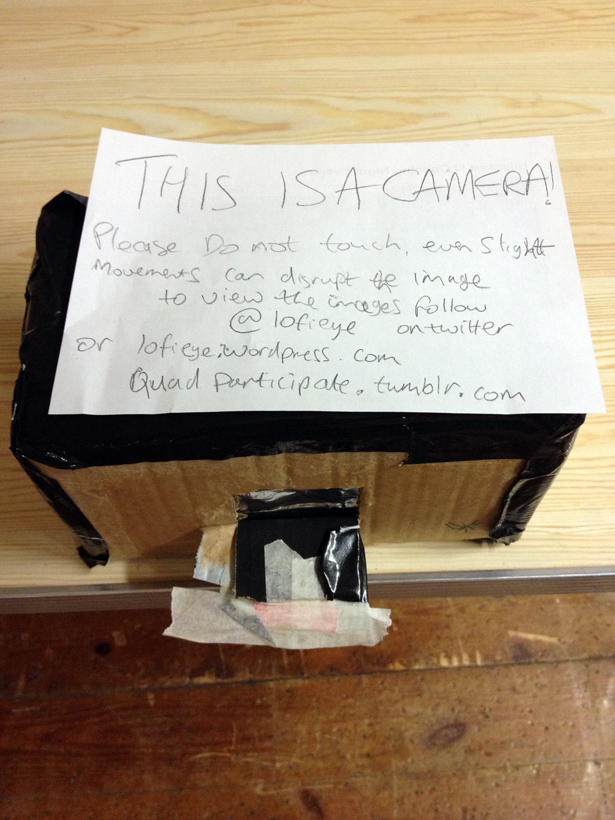 THIS IS A CAMERA!
Please Do not touch, even slight
Movements can disrupt the image
to view the images follow
@lofieye on twitter
or lofieye.wordpress.com
Quad Participate.tumblr.com